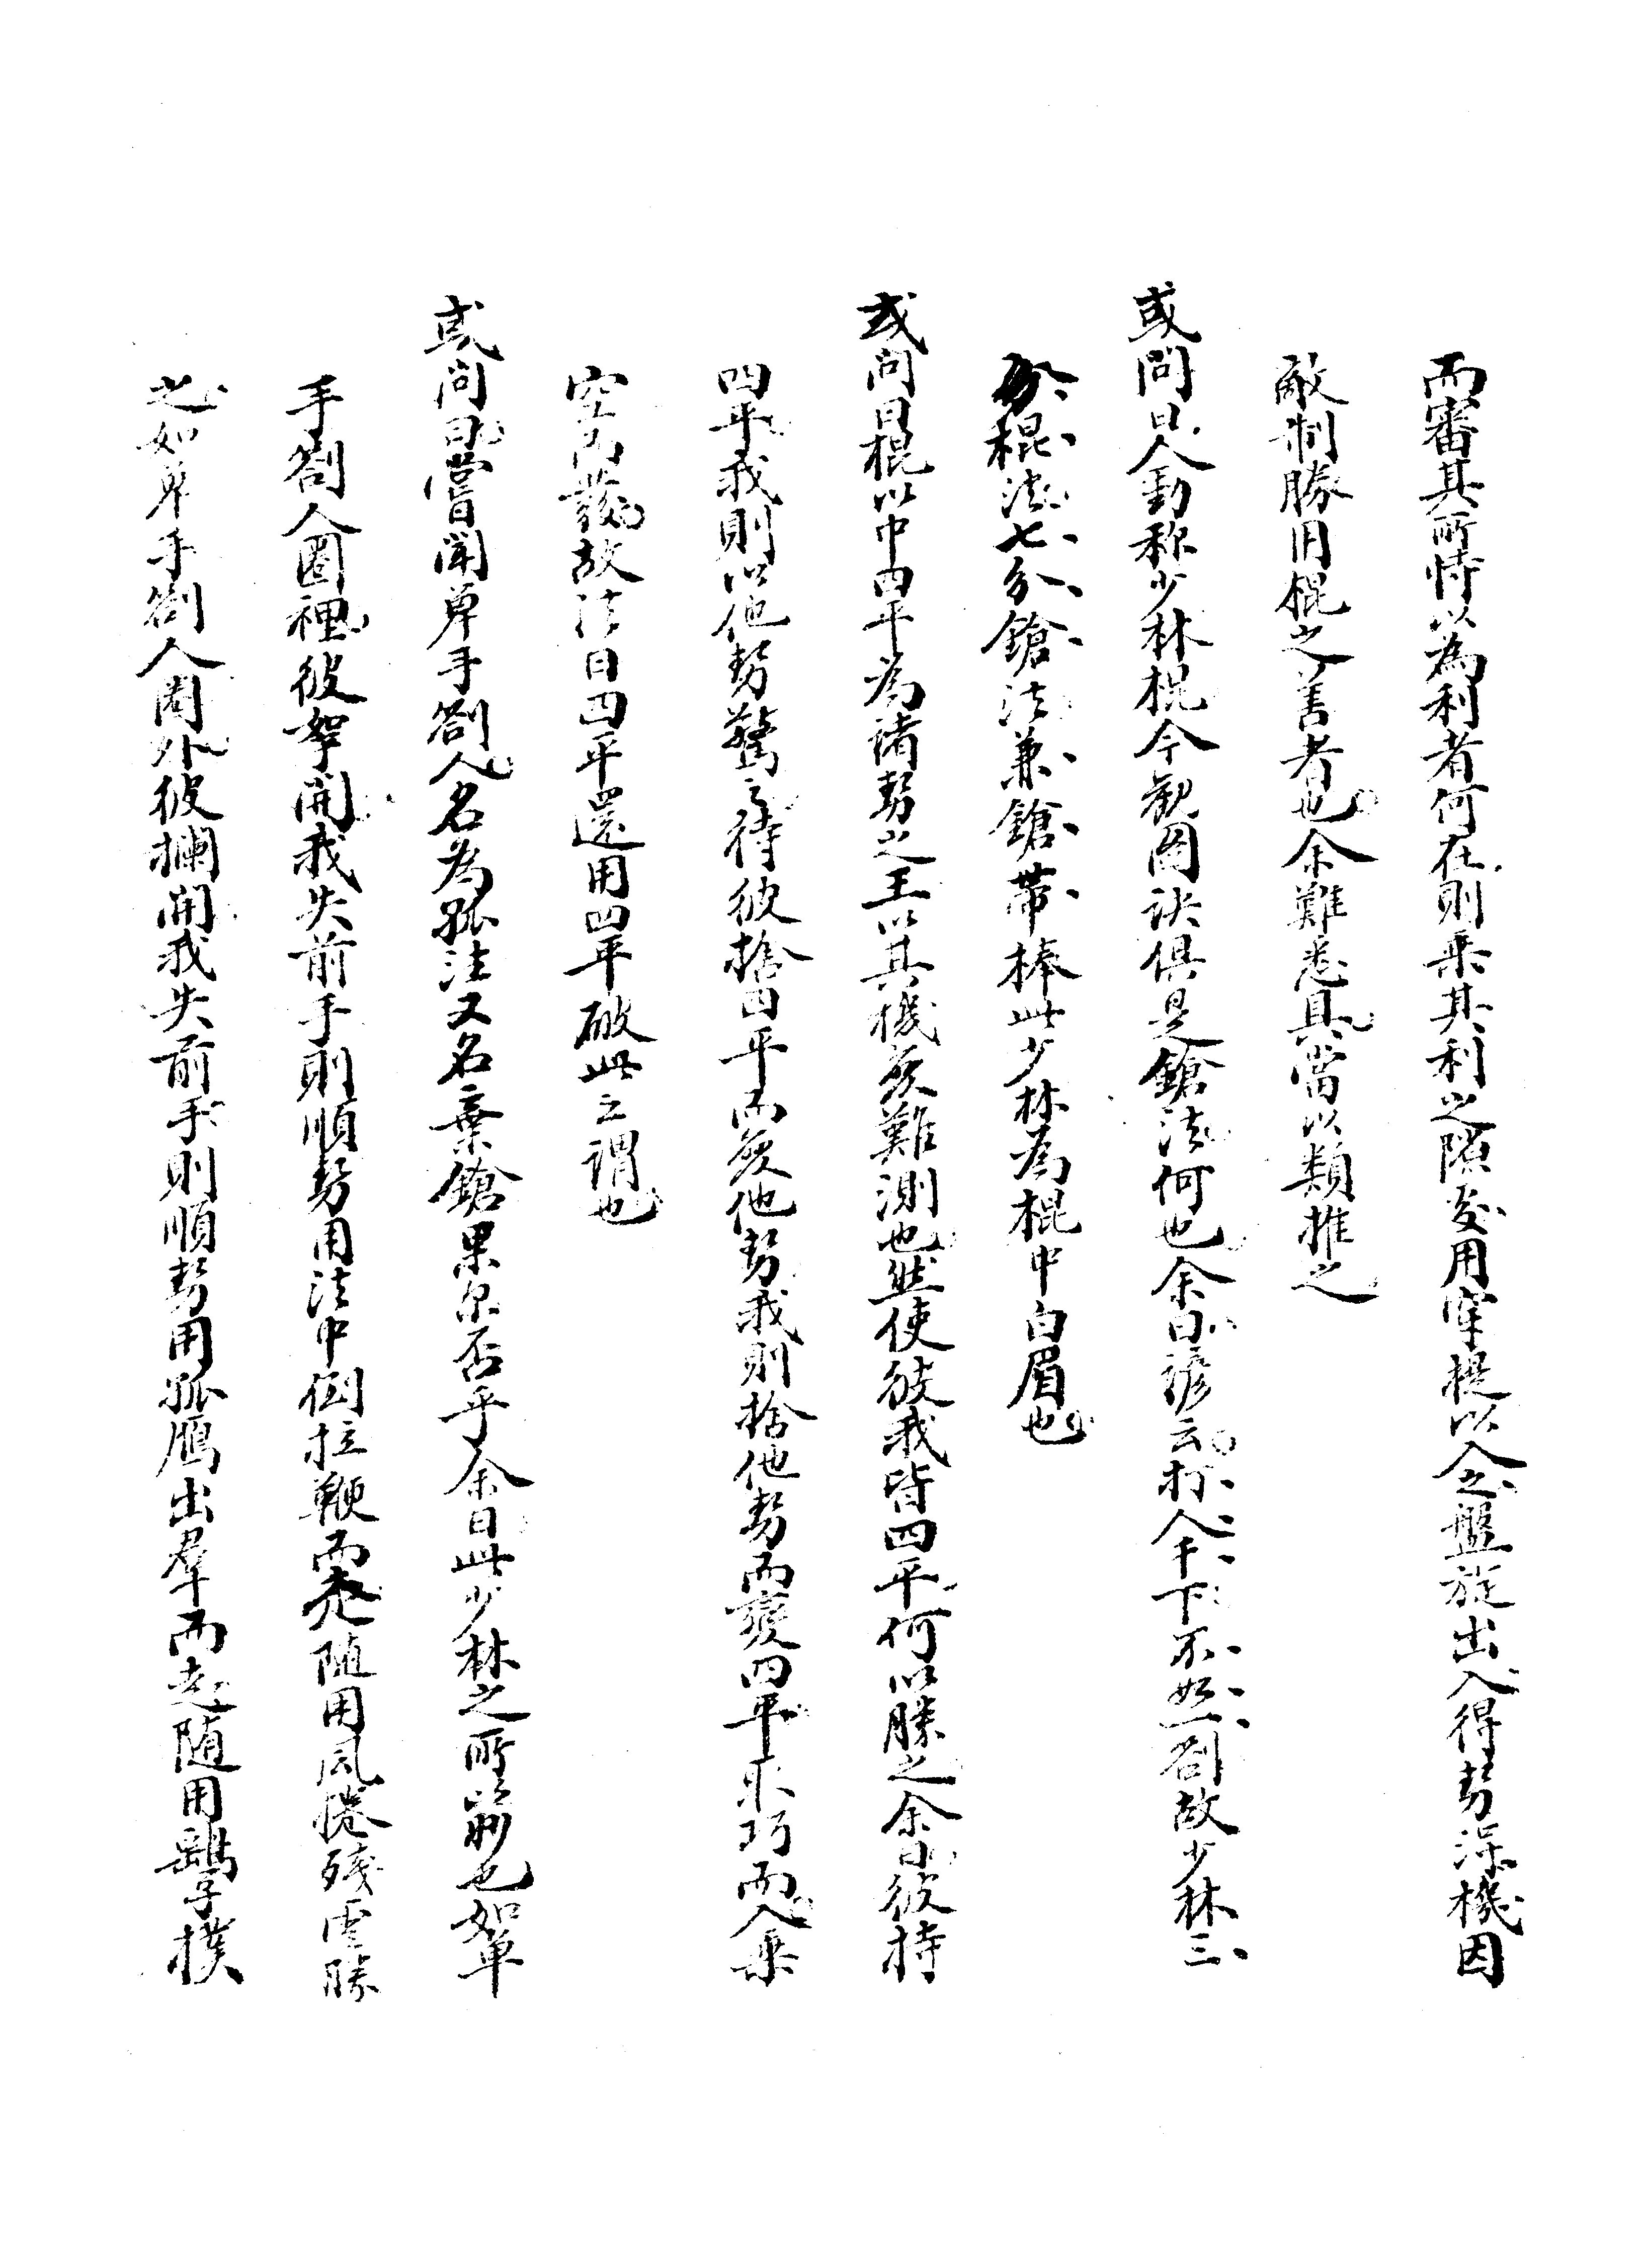 而審其所恃以為利者何在則乘其利之隙發用穿提以入之盤旋出入得勢深機因
敵制勝用棍之善者也余難悉具當以類推之
或問曰人動称少林棍今観圖訣俱是鎗法何也余曰諺云打人千下不如一劄故少林三
分棍法七分鎗法兼鎗帶棒此少林為棍中白眉也
或問曰棍以中四平為諸勢之王以其機變難測也然使彼我皆四平何以勝之余曰彼持
四平我則以他勢驚之待彼捨四平而變他勢我則捨他勢而變四平乘巧而入乘
空而發故法曰四平還用四平破此之謂也
或問曰嘗聞単手劄人名為孤注又名棄鎗果尔否乎余曰此少林之所以妙也如単
手劄人圈裡彼拏開我失前手則順勢用法中倒拉鞭而走随用風捲殘雲勝
之如単手劄人圈外彼攔開我失前手則順勢用孤鴈出羣而走随用鷂子撲